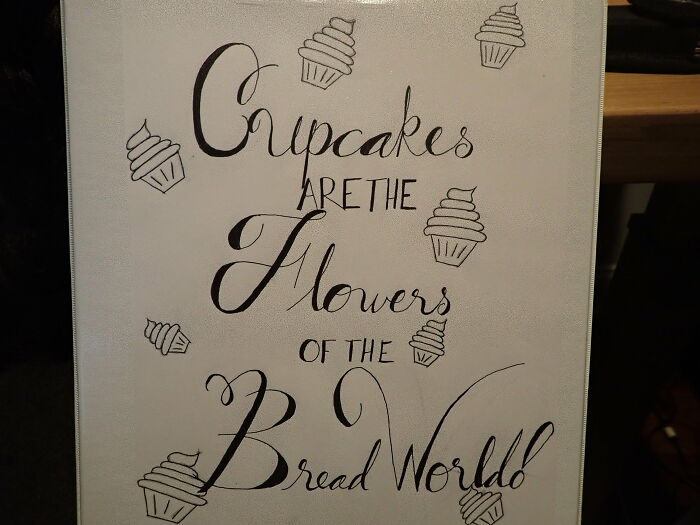 Cupcakes
ARE THE
Flowers
OF THE
Bread World!